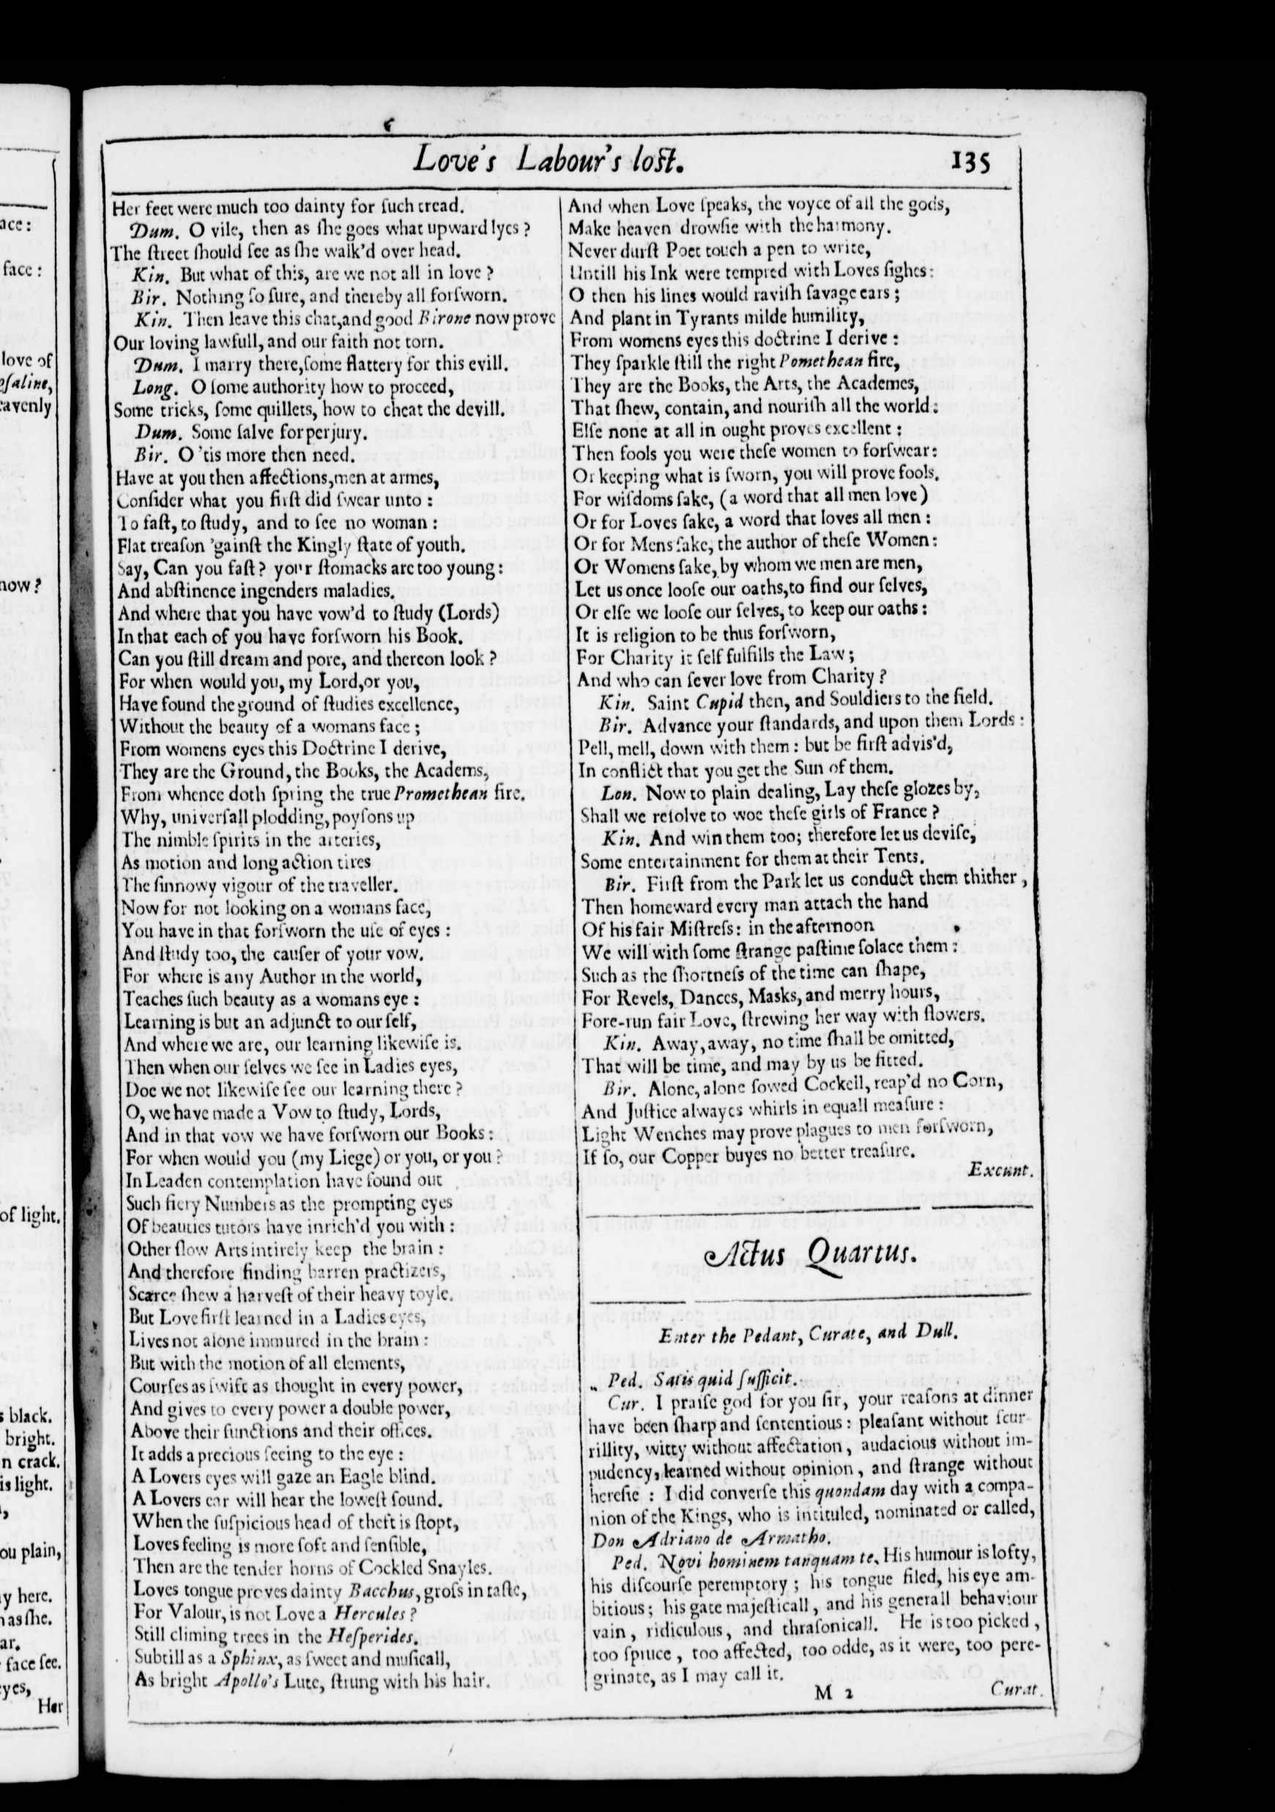 ace:
face:
love of
osaline,
eavenly
now?
of light.
s black.
bright.
n crack.
is light.
ou plain,
y here.
n as ſhe.
ar.
face ſee.
yes,
Her
Love's Labour's loſt.
135
Her feet were much too dainty for ſuch tread.
Dum. O vile, then as ſhe goes what upward lyes?
The ſtreet ſhould ſee as ſhe walk'd over head.
Kin. But what of this, are we not all in love?
Bir. Nothing ſo ſure, and thereby all forſworn.
Kin. Then leave this chat, and good Birone now prove
Our loving lawfull, and our faith not torn.
Dum. I marry there, ſome flattery for this evill.
Long. O ſome authority how to proceed,
Some tricks, ſome quillets, how to cheat the devill.
Dum. Some ſalve for perjury.
Bir. O 'tis more then need.
Have at you then affections, men at armes,
Conſider what you firſt did ſwear unto:
To faſt, to ſtudy, and to ſee no woman:
Flat treaſon 'gainſt the Kingly ſtate of youth.
Say, Can you faſt? your ſtomacks are too young:
And abſtinence ingenders maladies.
And where that you have vow'd to ſtudy (Lords)
In that each of you have forſworn his Book.
Can you ſtill dream and pore, and thereon look?
For when would you, my Lord, or you,
Have found the ground of ſtudies excellence,
Without the beauty of a womans face;
From womens eyes this Doctrine I derive,
They are the Ground, the Books, the Academs,
From whence doth ſpring the true Promethean fire.
Why, univerſall plodding, poyſons up
The nimble ſpirits in the arteries,
As motion and long action tires
The ſinnowy vigour of the traveller.
Now for not looking on a womans face,
You have in that forſworn the uſe of eyes:
And ſtudy too, the cauſer of your vow.
For where is any Author in the world,
Teaches ſuch beauty as a womans eye:
Learning is but an adjunct to our ſelf,
And where we are, our learning likewiſe is.
Then when our ſelves we ſee in Ladies eyes,
Doe we not likewiſe ſee our learning there?
O, we have made a Vow to ſtudy, Lords,
And in that vow we have forſworn our Books:
For when would you (my Liege) or you, or you?
In Leaden contemplation have found out
Such fiery Numbers as the prompting eyes
Of beauties tutors have inrich'd you with:
Other ſlow Arts intirely keep the brain:
And therefore finding barren practizers,
Scarce ſhew a harveſt of their heavy toyle.
But Love firſt learned in a Ladies eyes,
Lives not alone immured in the brain:
But with the motion of all elements,
Courſes as ſwift as thought in every power,
And gives to every power a double power,
Above their functions and their offices.
It adds a precious ſeeing to the eye:
A Lovers eyes will gaze an Eagle blind.
A Lovers ear will hear the loweſt ſound.
When the ſuſpicious head of theft is ſtopt,
Loves feeling is more ſoft and ſenſible,
Then are the tender horns of Cockled Snayles.
Loves tongue proves dainty Bacchus, groſs in taſte,
For Valour, is not Love a Hercules?
Still climing trees in the Heſperides.
Subtill as a Sphinx, as ſweet and muſicall,
As bright Apollo's Lute, ſtrung with his hair.
And when Love ſpeaks, the voyce of all the gods,
Make heaven drowſie with the harmony.
Never durſt Poet touch a pen to write,
Untill his Ink were tempred with Loves ſighes:
O then his lines would raviſh ſavage ears;
And plant in Tyrants milde humility,
From womens eyes this doctrine I derive:
They ſparkle ſtill the right Pomethean fire,
They are the Books, the Arts, the Academes,
That ſhew, contain, and nouriſh all the world:
Elſe none at all in ought proves excellent:
Then fools you were theſe women to forſwear:
Or keeping what is ſworn, you will prove fools.
For wiſdoms ſake, (a word that all men love)
Or for Loves ſake, a word that loves all men:
Or for Mens ſake, the author of theſe Women:
Or Womens ſake, by whom we men are men,
Let us once looſe our oaths, to find our ſelves,
Or elſe we looſe our ſelves, to keep our oaths:
It is religion to be thus forſworn,
For Charity it ſelf fulfills the Law;
And who can ſever love from Charity?
Kin. Saint Cupid then, and Souldiers to the field.
Bir. Advance your ſtandards, and upon them Lords:
Pell, mell, down with them: but be firſt advis'd,
In conflict that you get the Sun of them.
Lon. Now to plain dealing, Lay theſe glozes by,
Shall we reſolve to woe theſe girls of France?
Kin. And win them too; therefore let us deviſe,
Some entertainment for them at their Tents.
Bir. Firſt from the Park let us conduct them thither,
Then homeward every man attach the hand
Of his fair Miſtreſs: in the afternoon
We will with ſome ſtrange paſtime ſolace them:
Such as the ſhortneſs of the time can ſhape,
For Revels, Dances, Masks, and merry hours,
Fore-run fair Love, ſtrewing her way with flowers.
Kin. Away, away, no time ſhall be omitted,
That will be time, and may by us be fitted.
Bir. Alone, alone ſowed Cockell, reap'd no Corn,
And Juſtice alwayes whirls in equall meaſure:
Light Wenches may prove plagues to men forſworn,
If ſo, our Copper buyes no better treaſure.
Exeunt.
Actus Quartus.
Enter the Pedant, Curate, and Dull.
Ped. Satis quid ſufficit.
Cur. I praiſe god for you ſir, your reaſons at dinner
have been ſharp and ſententious: pleaſant without ſcur-
rillity, witty without affectation, audacious without im-
pudency, learned without opinion, and ſtrange without
hereſie: I did converſe this quondam day with a compa-
nion of the Kings, who is intituled, nominated or called,
Don Adriano de Armatho.
Ped. Novi hominem tanquam te. His humour is lofty,
his diſcourſe peremptory; his tongue filed, his eye am-
bitious; his gate majeſticall, and his generall behaviour
vain, ridiculous, and thraſonicall. He is too picked,
too ſpruce, too affected, too odde, as it were, too pere-
grinate, as I may call it.
M 2
Curat.